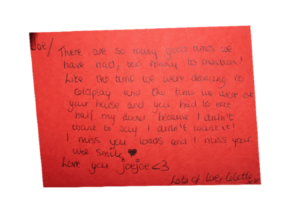 Joe/ There are so many good times we
have had, too many to mention!
Like the time we were dancing to
coldplay and the time we were at
your house and you had to eat
half my dinner because I didn't
want to say I didn't want it!
I miss you loads and I miss your
wee smile ♥
Love you joejoe <3
Lots of love